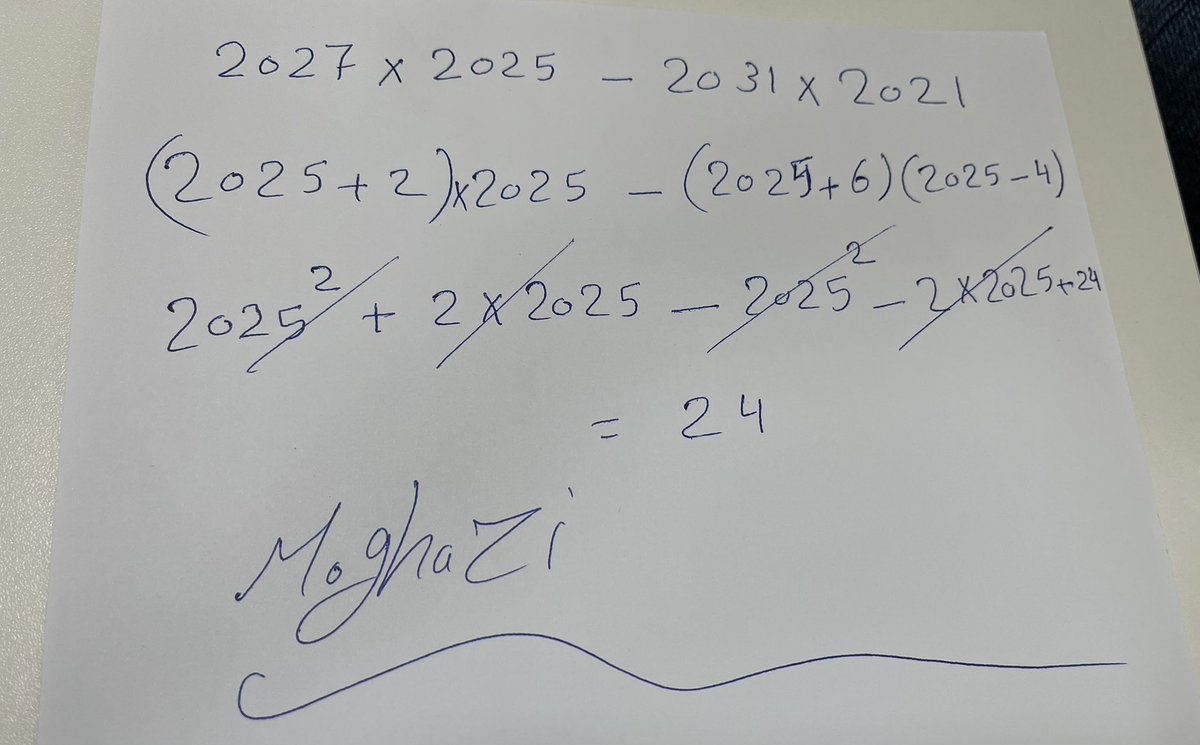 2027 x 2025 - 2031 x 2021
(2025 + 2)x2025 - (2025+6)(2025-4)
2025² + 2 x 2025 - 2025² - 2 x 2025+24
= 24
MoghaZi